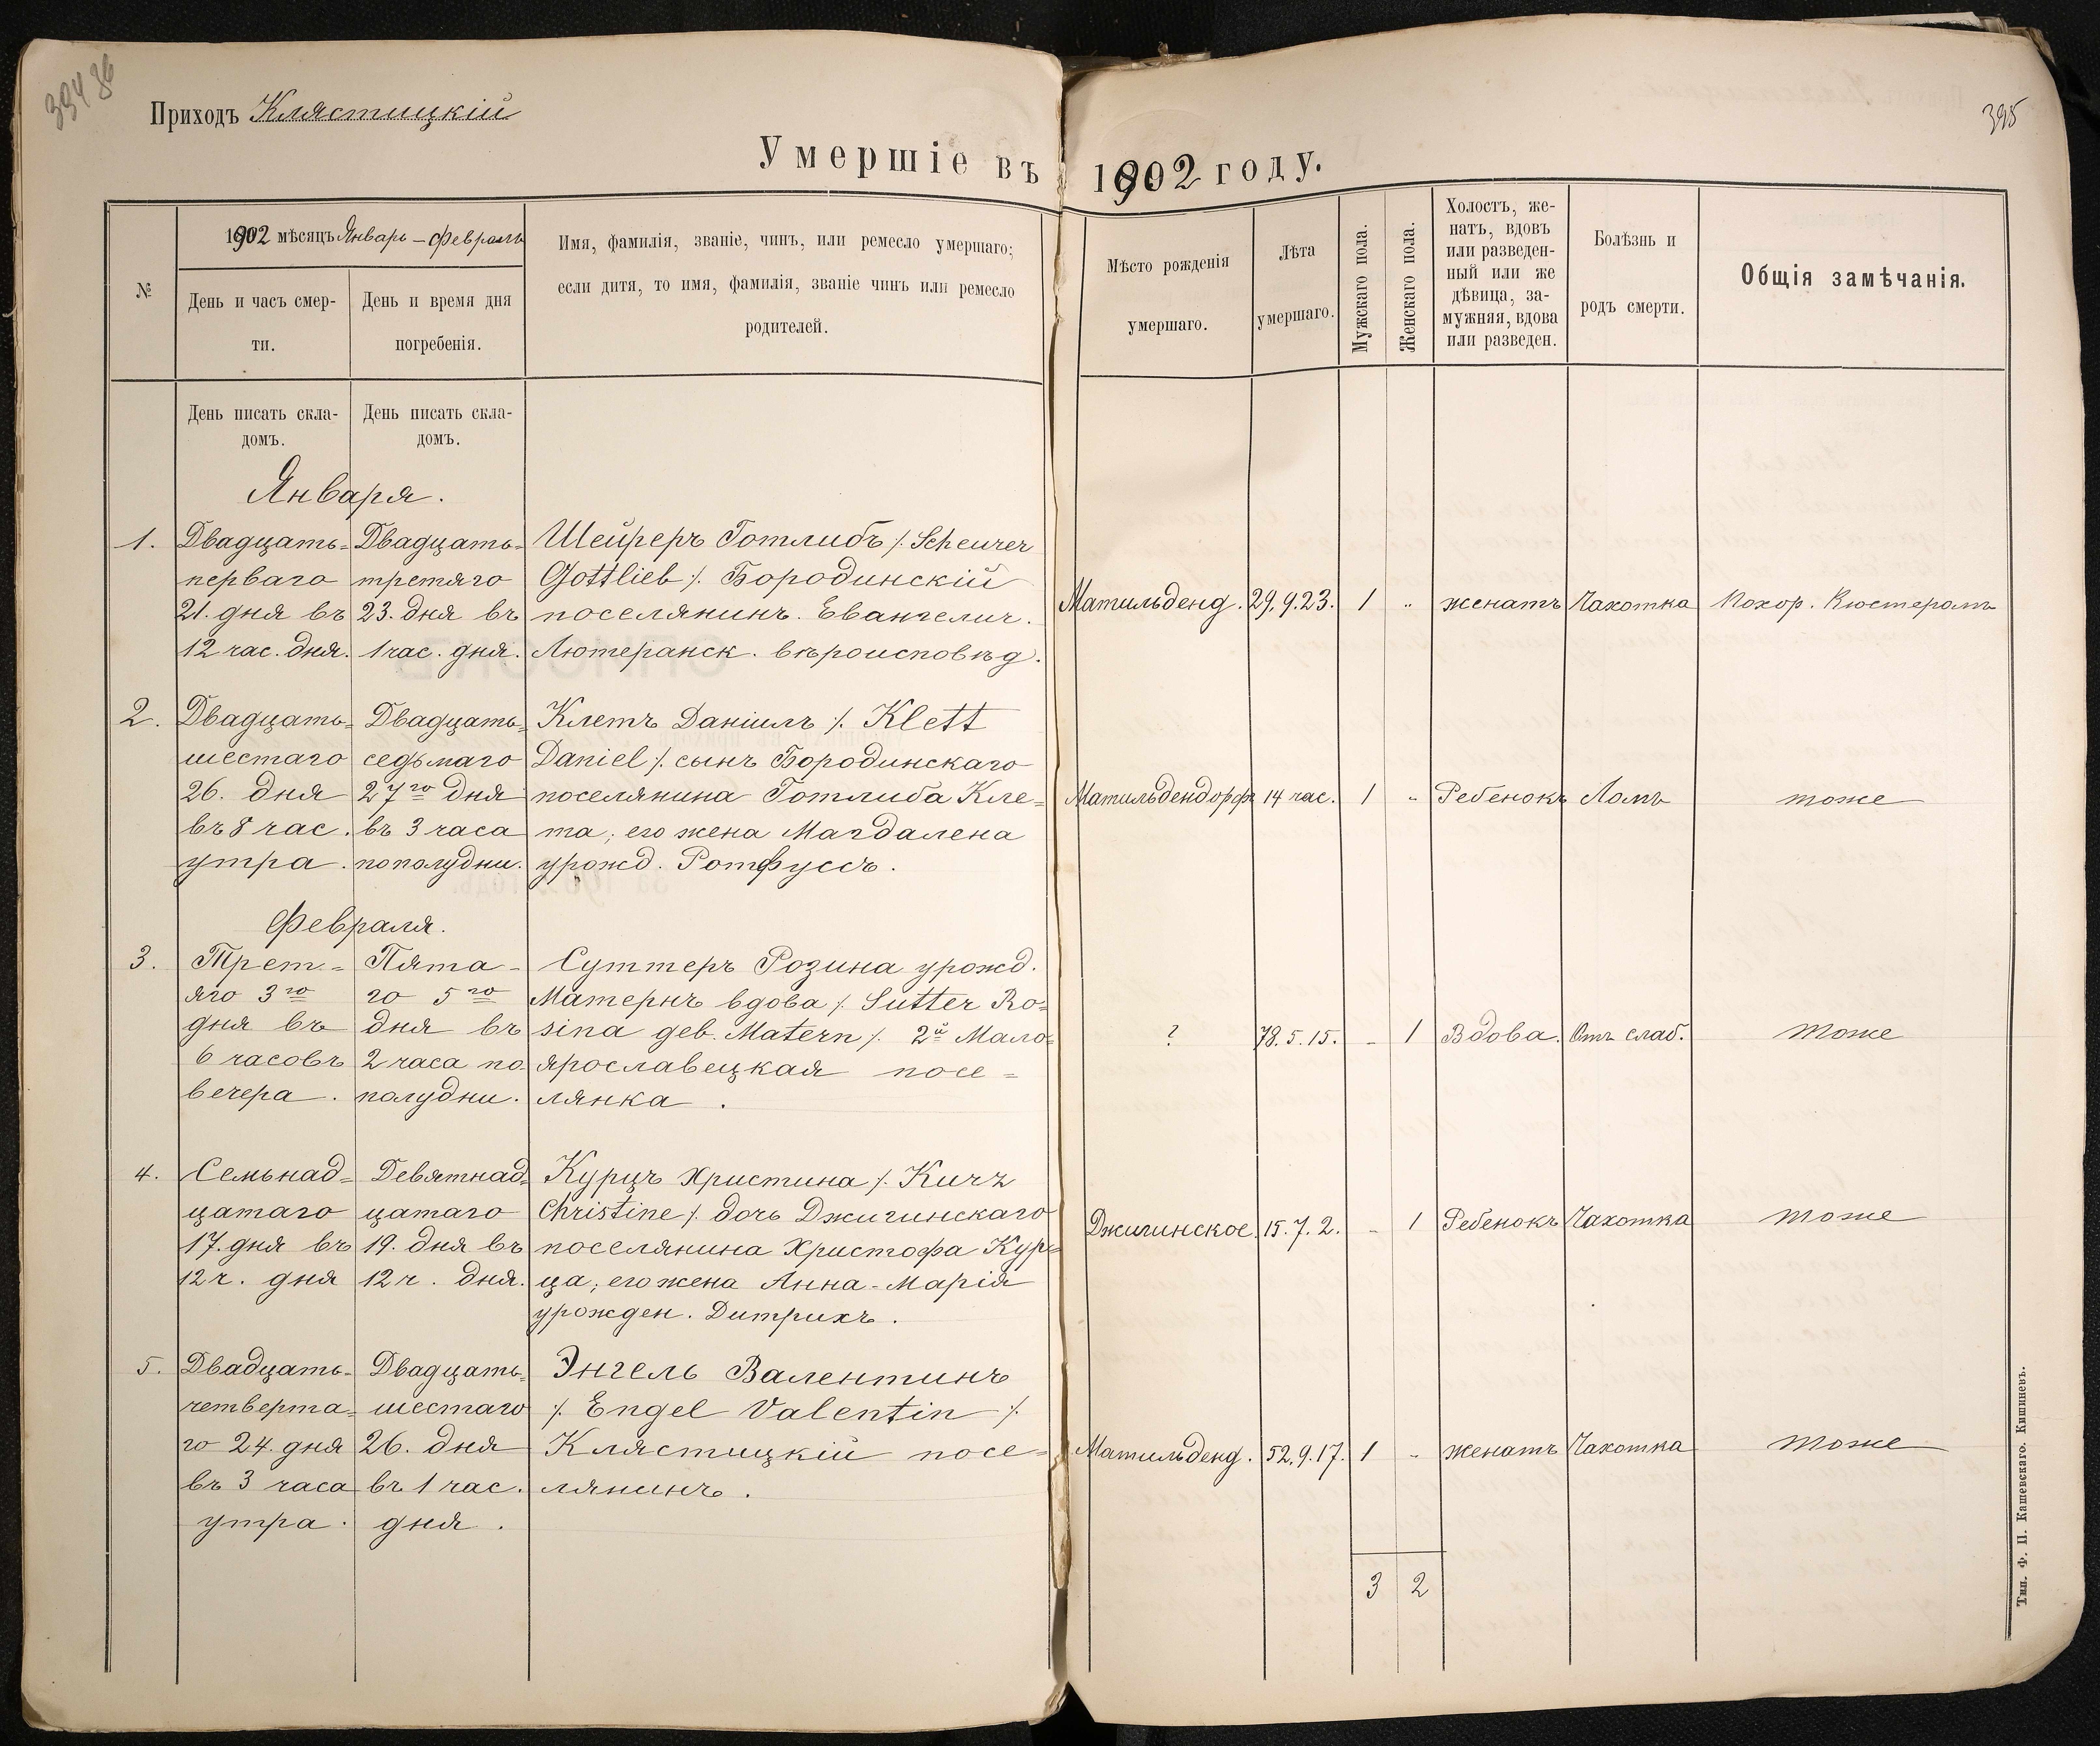 394 86
Приходъ Клястицкій
395
Умершіе въ 1902 году.
№
1902 мѣсяцъ Январь - Февраль
День и часъ смер-
ти.
День и время дня
погребенія.
Имя, фамилія, званіе, чинъ, или ремесло умершаго;
если дитя, то имя, фамилія, званіе чинъ или ремесло
родителей.
Мѣсто рожденія
умершаго.
Лѣта
умершаго.
Мужскаго пола.
Женскаго пола.
Холостъ, же-
натъ, вдовъ
или разведен-
ный или же
дѣвица, за-
мужняя, вдова
или разведен.
Болѣзнь и
родъ смерти.
Общія замѣчанія.
День писать скла-
домъ.
День писать скла-
домъ.
Января.
1.
Двадцать=
перваго
21. дня въ
12 час. дня.
Двадцать=
третяго
23. дня въ
1 час. дня.
Шейреръ Готлибъ /. Scheurer
Gottlieb /. Бородинскій
поселянинъ. Евангелич.
Лютеранск. вѣроисповѣд.
Матильденд.
29.9.23.
1
"
женатъ
Чахотка
Похор. Кюстеромъ
2.
Двадцать=
шестаго
26. дня
въ 8 час.
утра.
Двадцать=
седьмаго
27го дня
въ 3 часа
пополудни.
Клетъ Даніилъ /. Klett
Daniel /. сынъ Бородинскаго
поселянина Готлиба Кле=
та, его жена Магдалена
урожд. Ротфуссъ.
Матильдендорфъ
14 час.
1
"
Ребенокъ
Ломъ
тоже
Февраля.
3.
Трет=
яго 3го
дня въ
6 часовъ
вечера.
Пята-
го 5го
дня въ
2 часа по
полудни.
Суттеръ Розина урожд.
Матернъ вдова /. Sutter Ro=
sina geb. Matern /. 2й Мало=
ярославецкая посе=
лянка.
?
78.5.15.
-
1
Вдова.
Отъ слаб.
тоже
4.
Семьнад=
цатаго
17. дня въ
12 ч. дня
Девятнад=
цатаго
19. дня въ
12 ч. дня.
Курцъ Христина /. Kurz
Christine /. дочь Джигинскаго
поселянина Христофа Кур=
ца, его жена Анна-Марія
урожден. Дитрихъ.
Джигинское
15.7.2.
-
1
Ребенокъ
Чахотка
тоже
5.
Двадцать=
четверта=
го 24. дня
въ 3 часа
утра.
Двадцать=
шестаго
26. дня
въ 1 час.
дня.
Энгель Валентинъ
/. Engel Valentin /.
Клястицкій посе=
лянинъ.
Матильденд.
52.9.17.
1
"
женатъ
Чахотка
тоже
3
2
Тип. Ф. П. Кашевскаго. Кишиневъ.